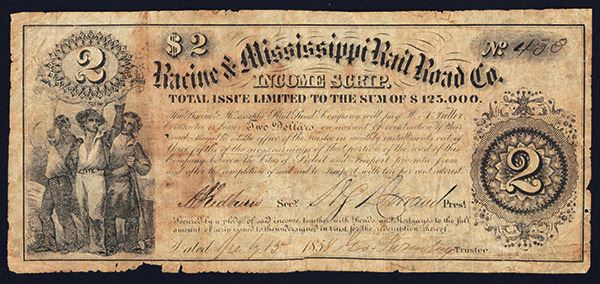 2
$2
No 458
Racine & Mississippi Rail Road Co.
INCOME SCRIP.
TOTAL ISSUE LIMITED TO THE SUM OF $125,000.
The Racine & Mississippi Rail Road Company will pay
Contractor or bearer Two Dollars, on account of construction of this
at the office of the Trustee
of the net earnings of that portion of the road of this
Company between the Cities of Beloit and Freeport pro rata from
and after the completion of said road to Freeport with ten per cent interest.
Secy. Prest.
Secured by a pledge of said income together with Bonds and Mortgages to the full
amount of scrip issued to the undersigned in trust for the redemption thereof.
Dated July 15 1858 Trustee
2